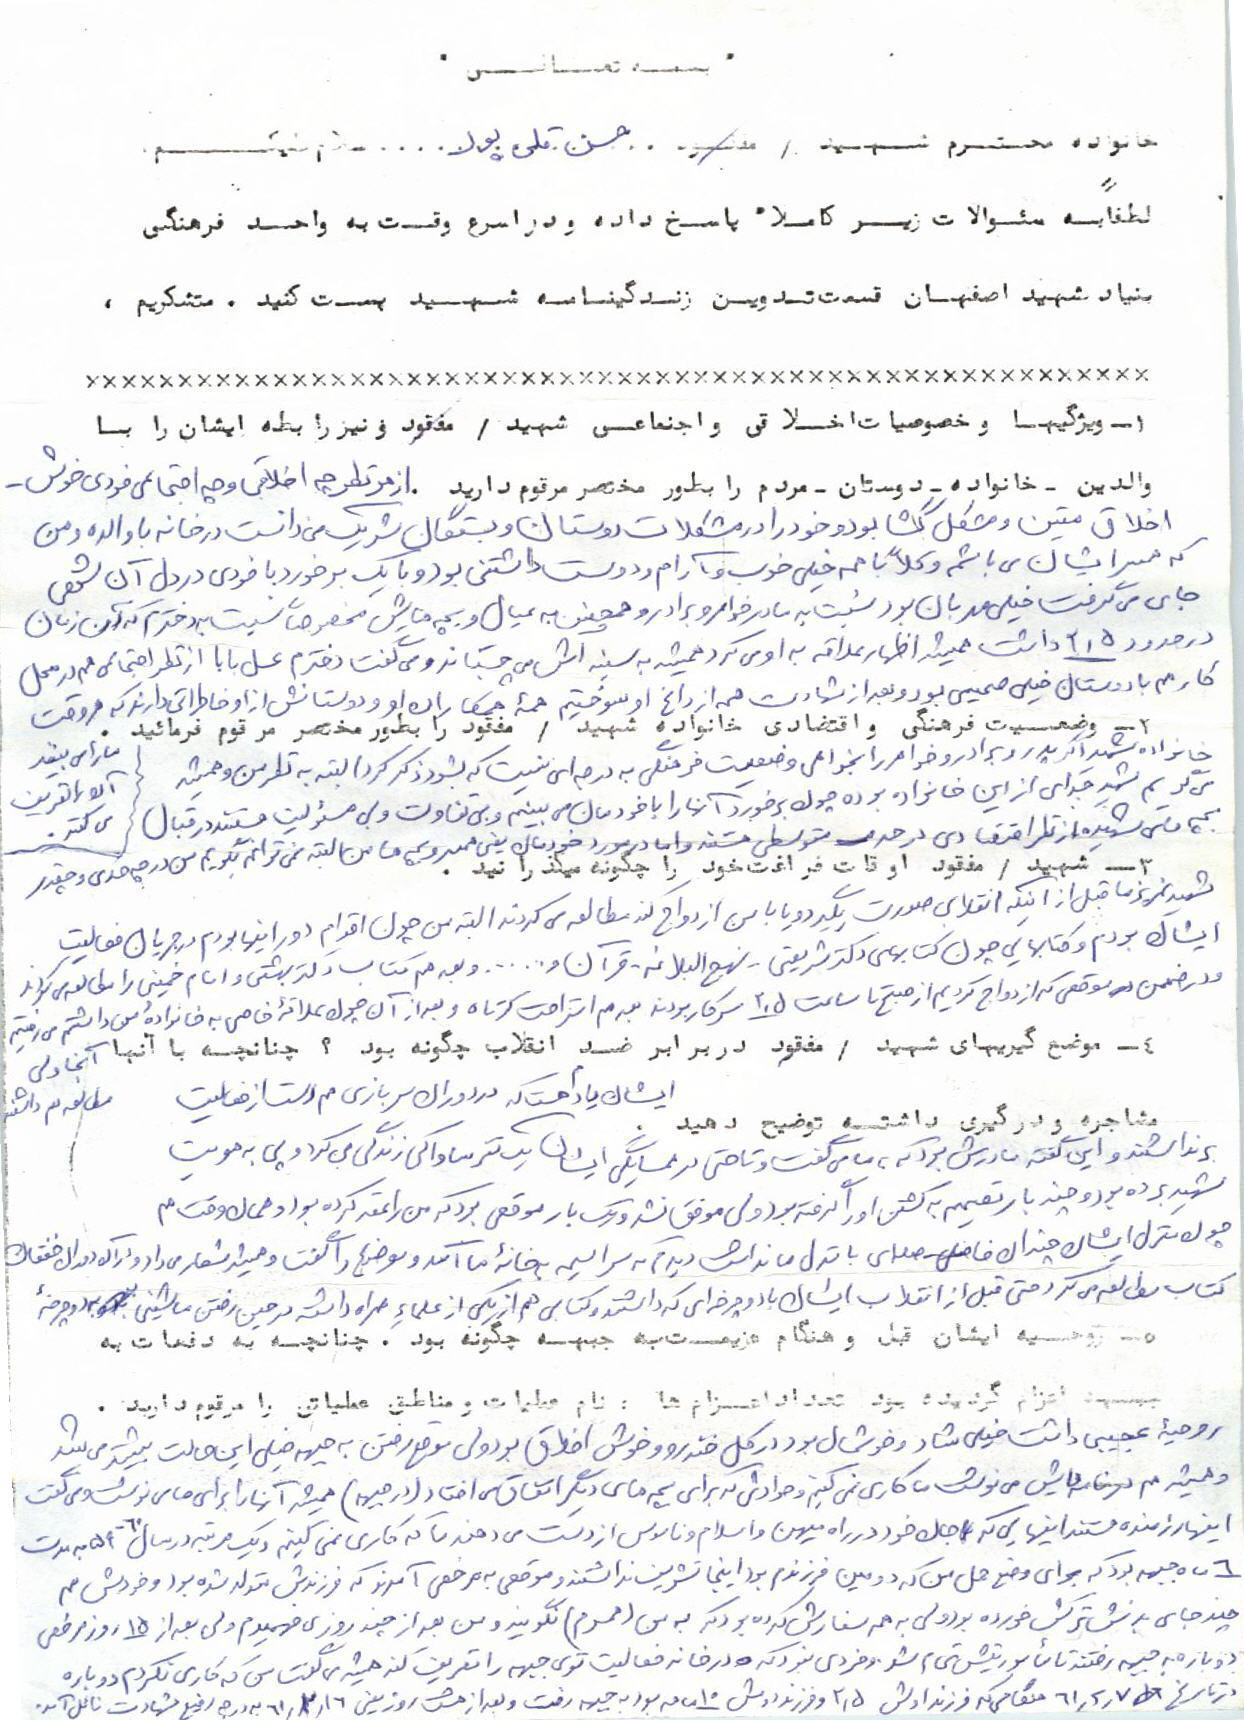 " بسمه تعالی "
خانواده محترم شهید / مفقود . . حسن قلی پور . . . . سلام علیکم .
لطفاً به سئوالات زیر کاملا" پاسخ داده و در اسرع وقت به واحد فرهنگی
بنیاد شهید اصفهان قسمت تدوین زندگینامه شهید پست کنید . متشکریم ،
××××××××××××××××××××××××××××××××××××××××××××××××××××××××
۱- ویژگیها و خصوصیات اخلاقی و اجتماعی شهید / مفقود و نیز رابطه ایشان را با
والدین - خانواده - دوستان - مردم را بطور مختصر مرقوم دارید . از هر نظر چه اخلاقی و چه اجتماعی فردی خوش -
اخلاق متین و مشکل گشا بود و خود را در مشکلات دوستان و بستگان شریک می دانست در خانه با والده و من
که همسر ایشان می باشم و کلاً با همه خیلی خوب و آرام و دوست داشتنی بود و با یک برخورد با فردی در دل آن شخص
جای می گرفت خیلی مهربان بود نسبت به مادر خواهر و برادر و همچنین به عیال و بچه هایش مخصوصاً نسبت به دخترم که آن زمان
در حدود ۲٫۵ داشت همیشه اظهار علاقه به او می کرد همیشه به سینه اش می چسباند و می گفت دخترم عسل بابا از نظر اجتماعی هم در محل
کار هم با دوستان خیلی صمیمی بود و بعد از شهادت همه از داغ او سوختیم همهٔ همکاران او و دوستانش از او خاطراتی دارند که هر وقت
ما را می بینند
آن را تعریف
می کنند .
۲- وضعیت فرهنگی و اقتصادی خانواده شهید / مفقود را بطور مختصر مرقوم فرمائید .
خانواده شهید اگر پدر و برادر و خواهر را بخواهی وضعیت فرهنگی به درجه ای نیست که بشود ذکر کرد البته به نظر من و همیشه
می گویم شهید جدای از این خانواده بوده چون برخورد آنها را با خودمان می بینم و بی تفاوت و بی مسئولیت هستند در قبال
بچه های شهید از نظر اقتصادی در حد متوسطی هستند و اما در مورد خودمان یعنی همسر و بچه ها من البته نمی توانم بگویم من در چه حدی و چقدر
۳- شهید / مفقود اوقات فراغت خود را چگونه میگذرانید .
شهید عزیز ما قبل از اینکه انقلابی صورت بگیرد و یا با من ازدواج کند مطالعه می کردند البته من چون اقوام دور اینها بودم در جریان فعالیت
ایشان بودم و کتابهایی چون کتابهای دکتر شریعتی - نهج البلاغه - قرآن و ..... و بعد هم کتاب دکتر بهشتی و امام خمینی را مطالعه می کردند
و در ضمن موقعی که ازدواج کردیم از صبح تا ساعت ۲٫۵ سر کار بودند بعد هم استراحت کوتاه و بعد از آن چون علاقهٔ خاصی به خانوادهٔ من داشتم می رفتیم
آنجا ولی
مطالعه هم داشتند
۴- موضع گیریهای شهید / مفقود در برابر ضد انقلاب چگونه بود ؟ چنانچه با آنها
مشاجره و درگیری داشته توضیح دهید .
ایشان یادم هست که در دوران سربازی هم دست از فعالیت
برنداشتند و این گفته مادرش بود که به ما می گفت و تا حتی در همسایگی ایشان یک نفر ساواکی زندگی می کرد و پی به هویت
شهید برده بود و چند بار تصمیم به کشتن او را گرفته بود ولی موفق نشد و یک بار موقعی بود که من را عقد کرده بود و همان وقت هم
چون منزل ایشان چندان فاصله ای با منزل ما نداشت دیدم که سراسیمه به خانهٔ ما آمد و موضوع را گفت و همیشه شعار می داد و در آن دوران خفقان
کتاب مطالعه می کرد حتی قبل از انقلاب ایشان با دوچرخه ای که داشتند و کتابی هم از یکی از علماء همراه داشته در حین رفتن ماشینی به دوچرخهٔ
۵- روحیه ایشان قبل و هنگام عزیمت به جبهه چگونه بود . چنانچه به دفعات به
جبهه اعزام گردیده بود تعداد اعزام ها ، نام عملیات و مناطق عملیاتی را مرقوم دارید .
روحیهٔ عجیبی داشت خیلی شاد و خوشحال بود در کل خنده رو و خوش اخلاق بود ولی موقع رفتن به جبهه خیلی این حالت بیشتر می شد
و همیشه هم در نامه هایش می نوشت ما کاری نمی کنیم و حوادثی که برای بچه های دیگر اتفاق می افتاد (در جبهه) همیشه آنها را برای ما می نوشت و می گفت
اینها رزمنده هستند اینهایی که جان خود در راه میهن و اسلام و ناموس از دست می دهند ما که کاری نمی کنیم و یک مرتبه در سال ۶۰-۵۹ به مدت
۶ ماه جبهه بود که برای وضع حمل من که دومین فرزندم بود اینجا تشریف نداشتند و موقعی به مرخصی آمدند که فرزندش متولد شده بود و خودش هم
چند جای بدنش ترکش خورده بود ولی به همه سفارش کرده بود که به من (همسرم) نگویند و من بعد از چند روزی فهمیدم ولی بعد از ۱۵ روز مرخصی
دوباره به جبهه رفتند تا مأموریتش تمام شود و فردی نبود که در خانه فعالیت توی جبهه را تعریف کند همیشه می گفت من که کاری نکردم دوباره
در تاریخ ۶۱٫۲٫۷ هنگامی که فرزند اولش ۲٫۵ و فرزند دومش ۱۰ ماهه بود به جبهه رفت و بعد از هشت روز یعنی ۶۱٫۲٫۱۶ به درجه رفیع شهادت نائل آمد .